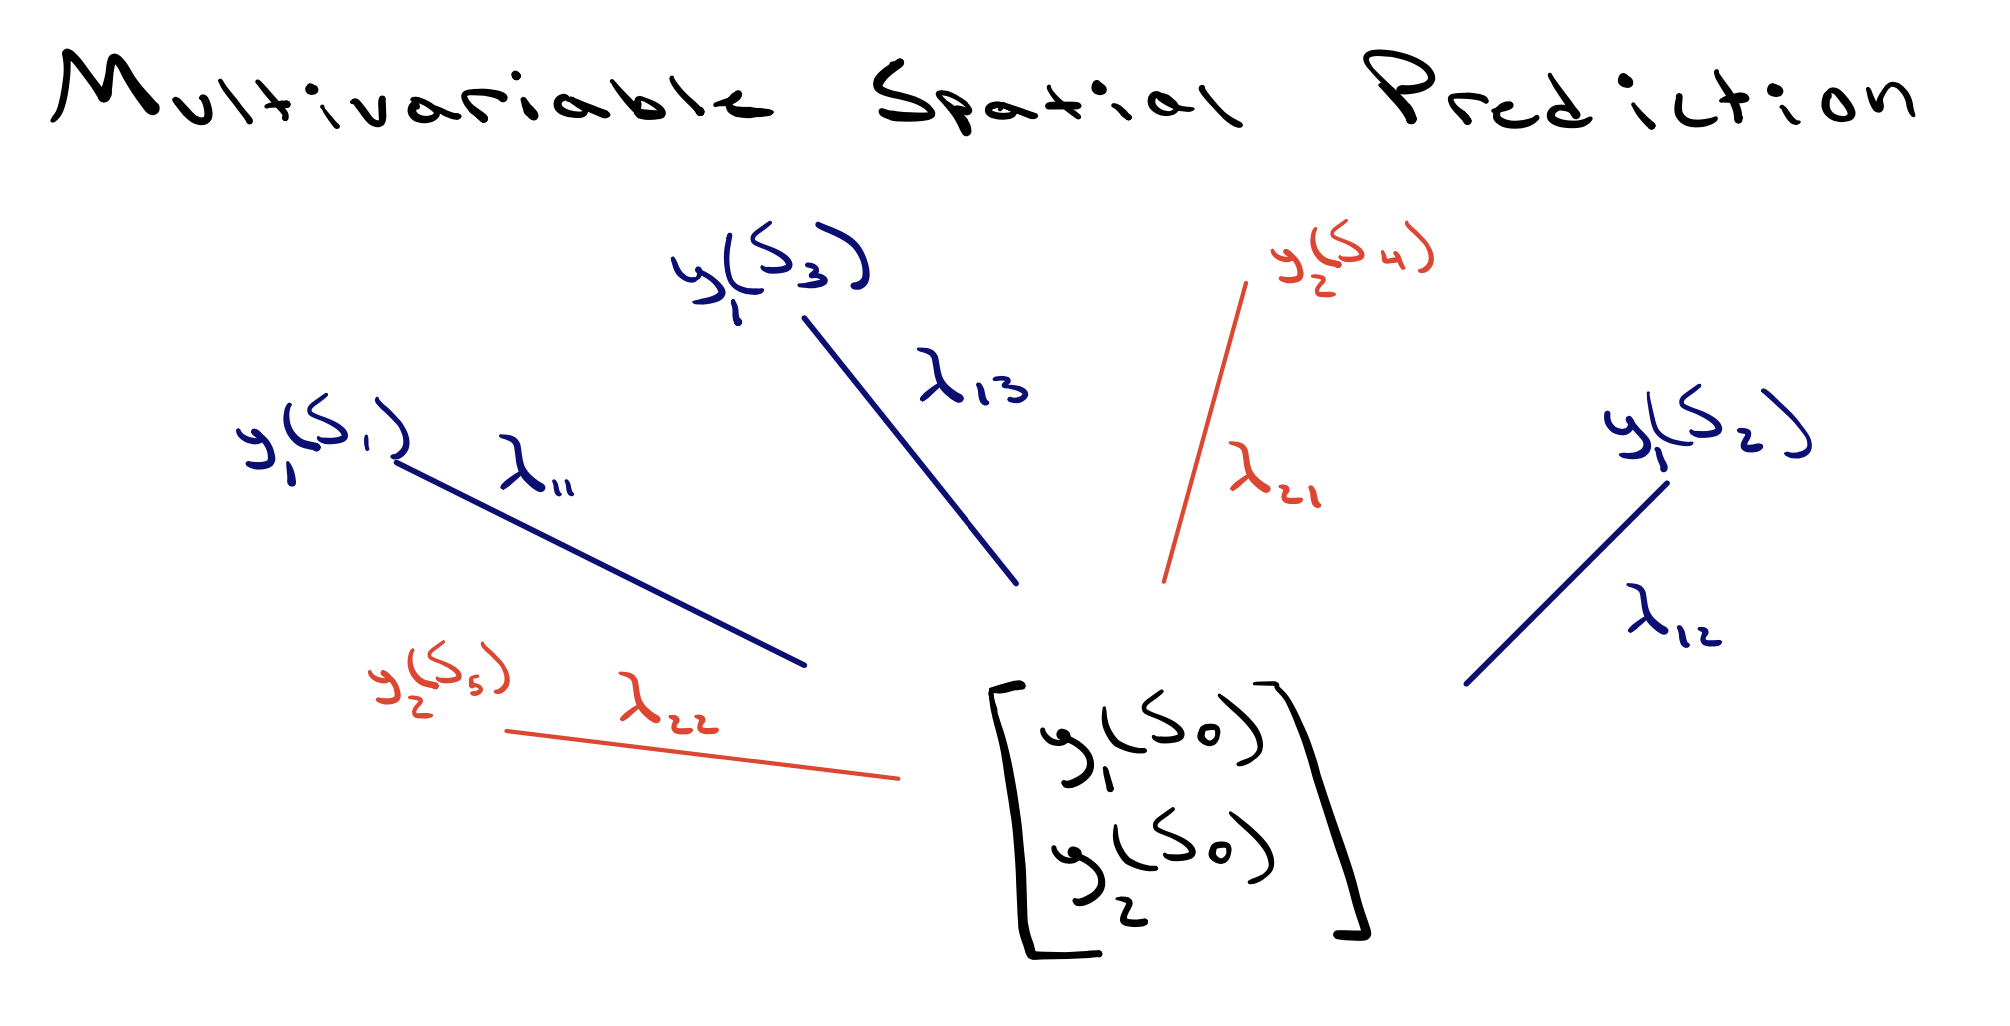 Multivariable Spatial Prediction
y₁(S₃)
y₂(S₄)
λ₁₃
y₁(S₁)
λ₁₁
y₁(S₂)
λ₂₁
λ₁₂
y₂(S₅)
λ₂₂
y₁(S₀)
y₂(S₀)